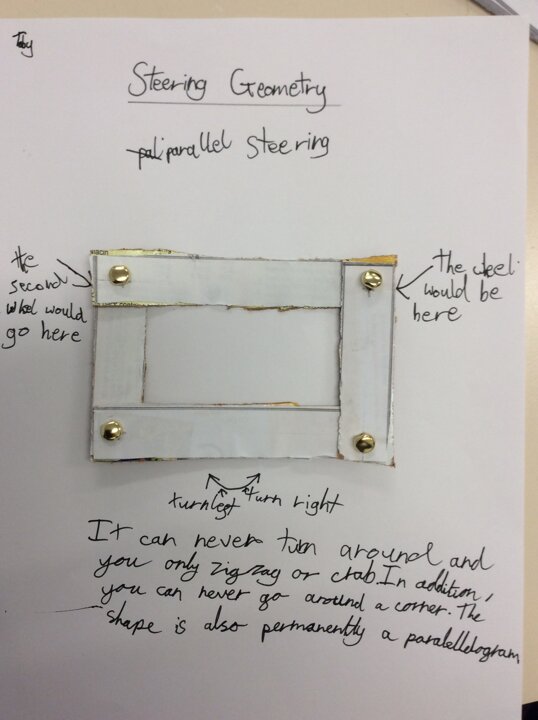 Toby
Steering Geometry
parallel steering
the
second
wheel would
go here
The wheel
would be
here
turn left turn right
It can never turn around and
you only zig zag or crab. In addition,
you can never go around a corner. The
shape is also permanently a paralelledogram